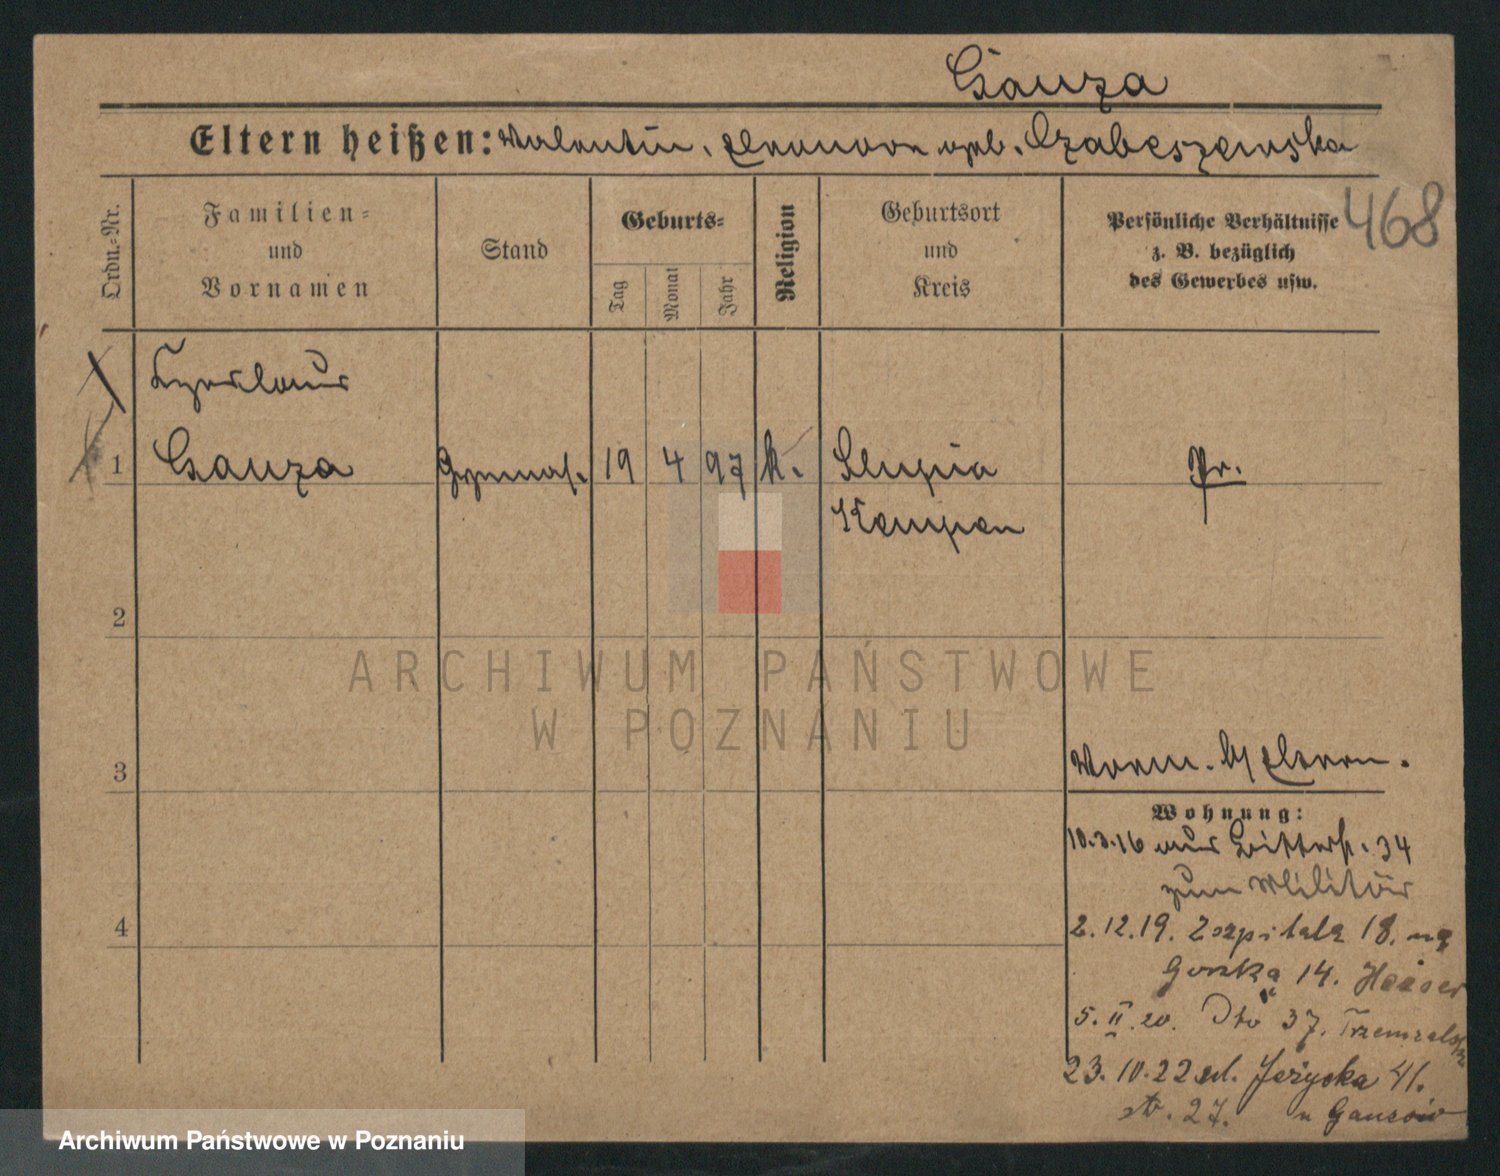 Ganza
Eltern heißen: Valentin, Eleonore geb. Czabeszewska
468
Ordn.-Nr.
Familien-
und
Vornamen
Stand
Geburts-
Tag
Monat
Jahr
Religion
Geburtsort
und
Kreis
Persönliche Verhältnisse
z. B. bezüglich
des Gewerbes usw.
1
Ganza
Gymnas.
19
4
97
k.
Slupia
Kempen
Pr.
2
3
4
Wohnung:
10.3.16 aus Ritterstr. 34
zum Militär
2.12.19. Z Szpitala 18. na
Gorska 14.
5.II.20. Dto 37.
23.10.22 ul. Jeżycka 41.
ARCHIWUM PAŃSTWOWE
W POZNANIU
Archiwum Państwowe w Poznaniu